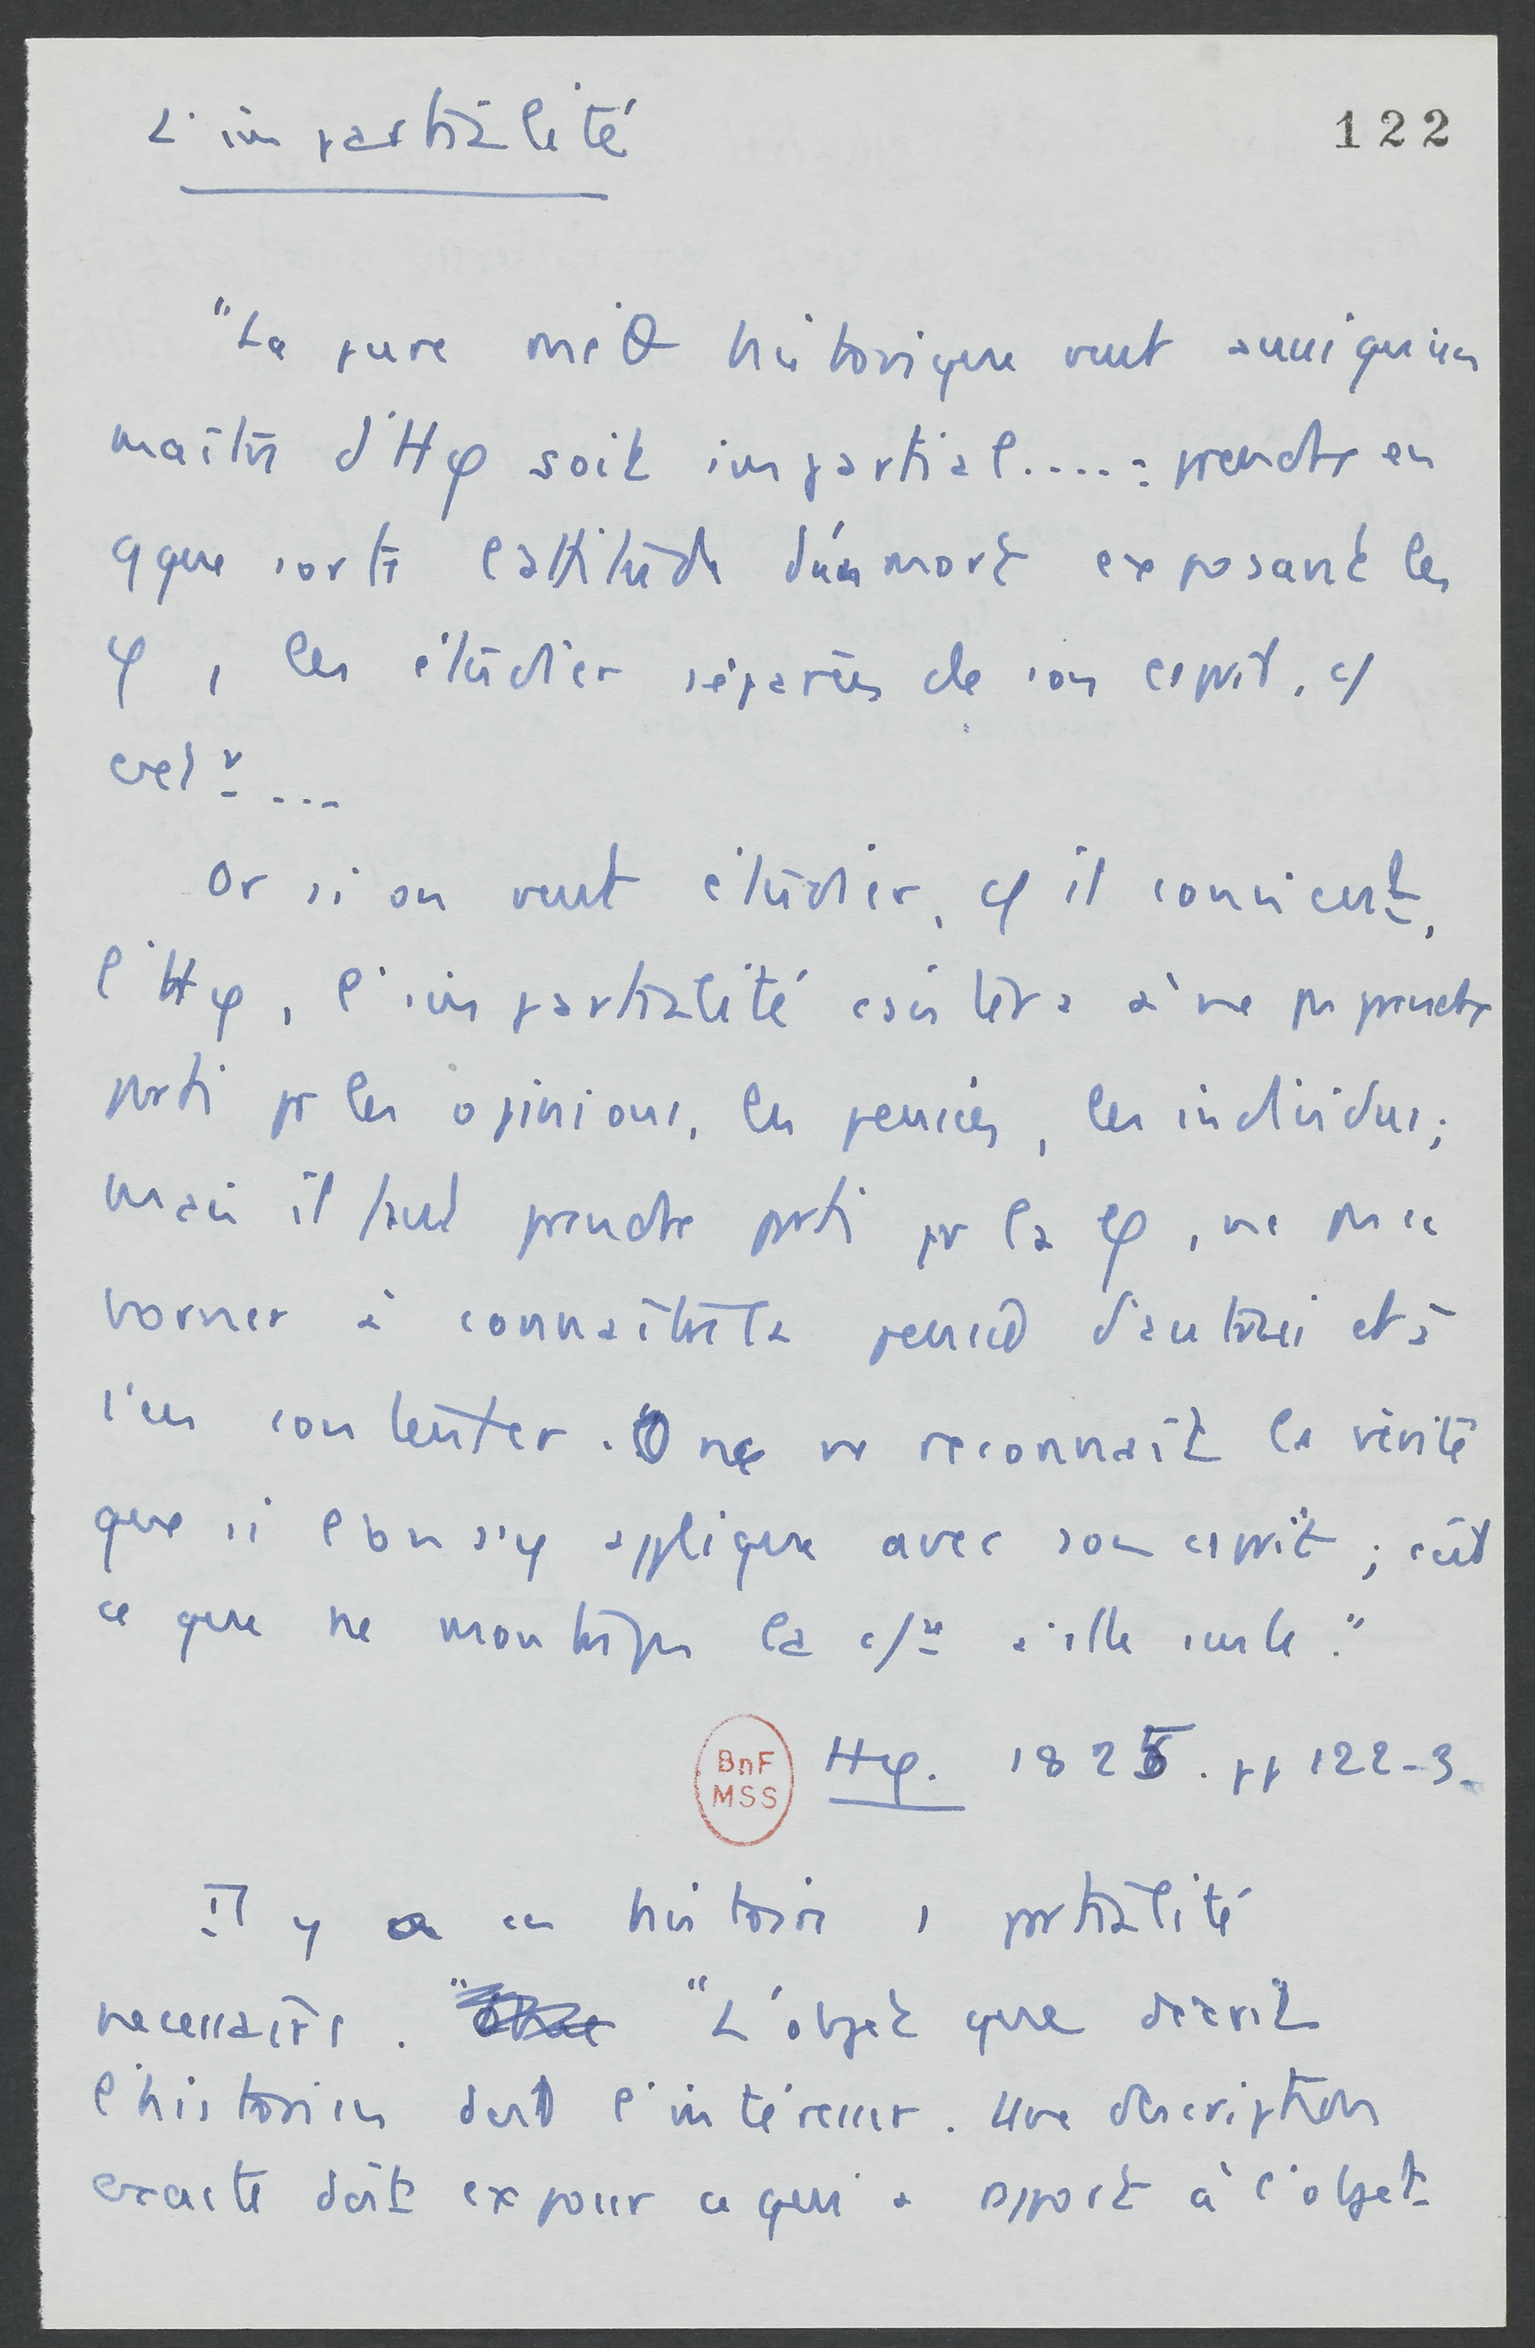 L'impartialité
122
"La pure méθ historique veut aussi qu'un
maître d'Hφ soit impartial..... : prendre en
qque sorte l'attitude d'un mort exposant les
φ, les étudier séparées de son esprit, c/
Or si on veut étudier, c/ il convient,
l'Hφ, l'impartialité consistera à ne pas prendre
parti pr les opinions, les pensées, les individus ;
mais il faut prendre parti pr la φ, ne pas se
borner à connaître la pensée d'autrui et à
s'en contenter. On ne reconnaît la vérité
que si l'on s'y applique avec son esprit ; c'est
ce que ne montre pas la c/ à elle seule."
BnF
MSS
Hφ. 1825. pp 122-3.
Il y a en histoire 1 partialité
nécessaire. "L'objet que décrit
l'historien doit l'intéresser. Une description
exacte doit exposer ce qui a rapport à l'objet